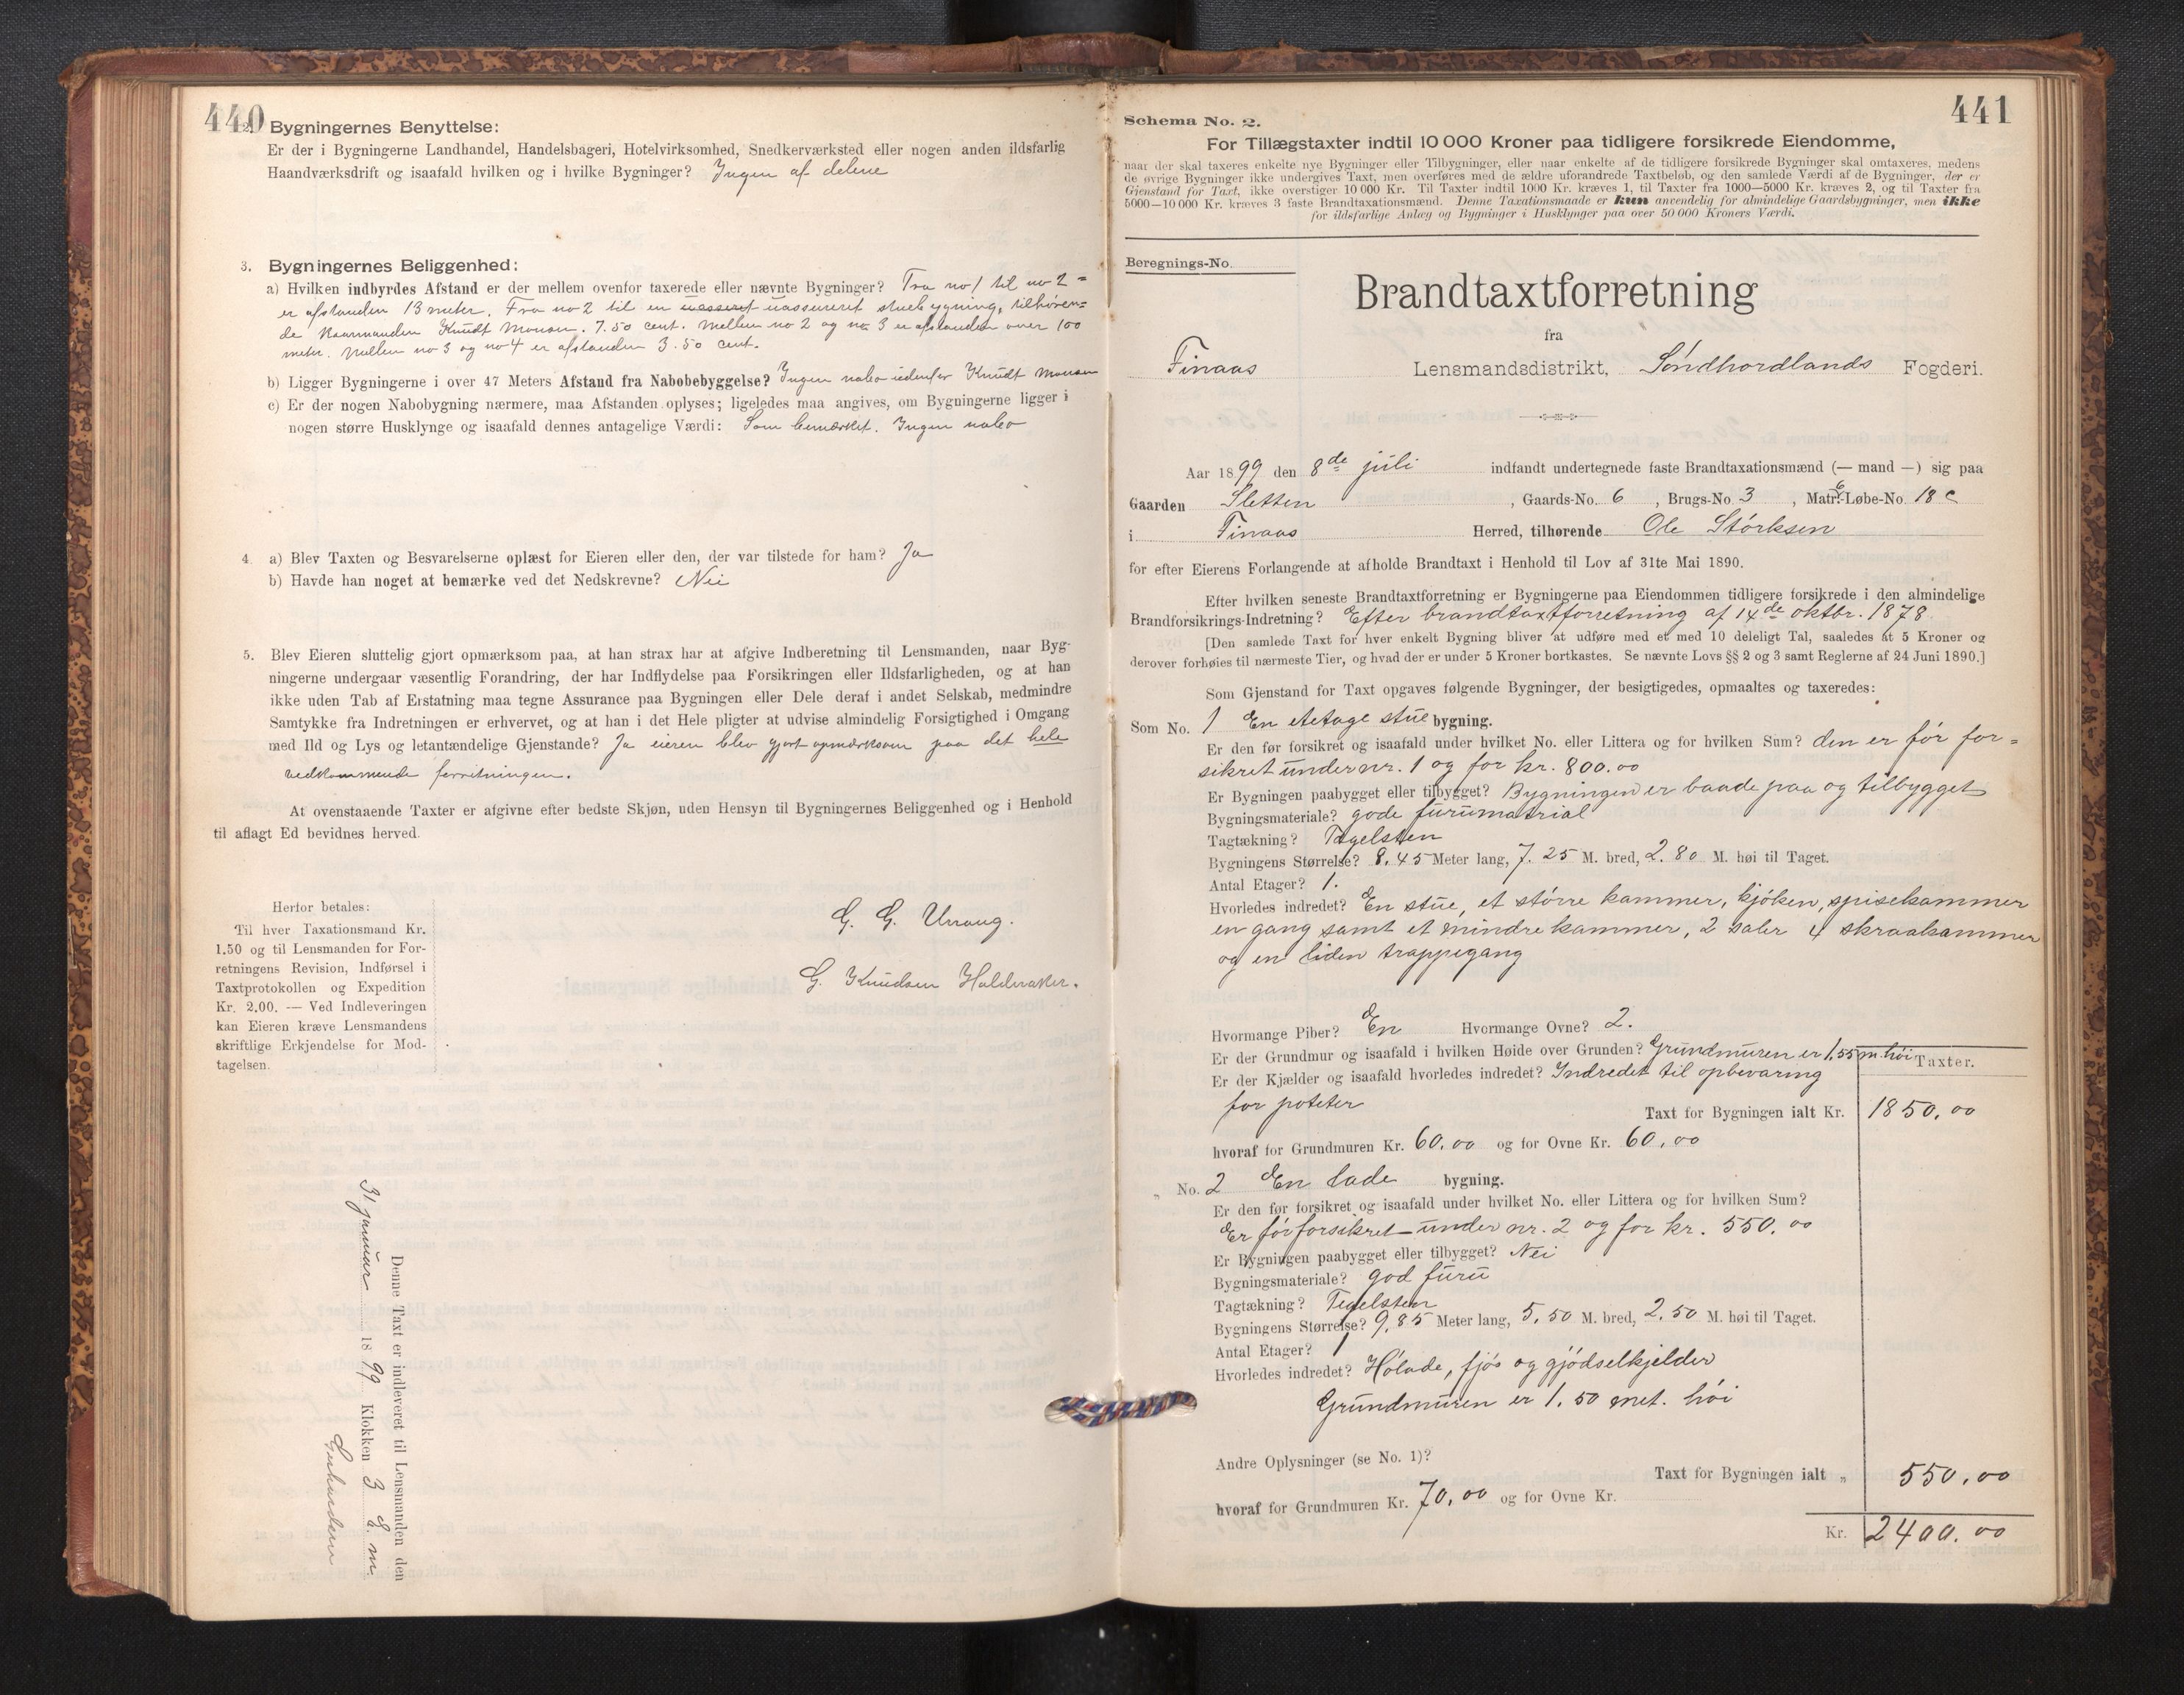 440
2. Bygningernes Benyttelse:
Er der i Bygningerne Landhandel, Handelsbageri, Hotelvirksomhed, Snedkerværksted eller nogen anden ildsfarlig
Haandværksdrift og isaafald hvilken og i hvilke Bygninger? Ingen af delene
3. Bygningernes Beliggenhed:
a) Hvilken indbyrdes Afstand er der mellem ovenfor taxerede eller nævnte Bygninger? Fra no 1 til no 2 =
er afstanden 13 meter. Fra no 2 til en uasseret uassureret stuebygning, tilhören=
de Kaarmanden Knudt Monsen. 7.50 cent. Mellem no 2 og no 3 er afstanden over 100
meter. Mellem no 3 og no 4 er afstanden 3.50 cent.
b) Ligger Bygningerne i over 47 Meters Afstand fra Nabobebyggelse? Ingen nabo udenfor Knudt Monsen
c) Er der nogen Nabobygning nærmere, maa Afstanden oplyses; ligeledes maa angives, om Bygningerne ligger i
nogen større Husklynge og isaafald dennes antagelige Værdi: Som bemærket. Ingen nabo
4. a) Blev Taxten og Besvarelserne oplæst for Eieren eller den, der var tilstede for ham? Ja
b) Havde han noget at bemærke ved det Nedskrevne? Nei
5. Blev Eieren sluttelig gjort opmærksom paa, at han strax har at afgive Indberetning til Lensmanden, naar Byg-
ningerne undergaar væsentlig Forandring, der har Indflydelse paa Forsikringen eller Ildsfarligheden, og at han
ikke uden Tab af Erstatning maa tegne Assurance paa Bygningen eller Dele deraf i andet Selskab, medmindre
Samtykke fra Indretningen er erhvervet, og at han i det Hele pligter at udvise almindelig Forsigtighed i Omgang
med Ild og Lys og letantændelige Gjenstande? Ja eieren blev gjort opmærksom paa det hele
vedkommende forretningen.
At ovenstaaende Taxter er afgivne efter bedste Skjøn, uden Hensyn til Bygningernes Beliggenhed og i Henhold
til aflagt Ed bevidnes herved.
G. G. Urang.
G. Knudsen Haldoraker.
Herfor betales:
Til hver Taxationsmand Kr.
1.50 og til Lensmanden for For-
retningens Revision, Indførsel i
Taxtprotokollen og Expedition
Kr. 2.00. — Ved Indleveringen
kan Eieren kræve Lensmandens
skriftlige Erkjendelse for Mod-
tagelsen.
Denne Taxt er indleveret til Lensmanden den
31 januar 1899 Klokken 3 E. m.
441
Schema No. 2.
For Tillægstaxter indtil 10 000 Kroner paa tidligere forsikrede Eiendomme,
naar der skal taxeres enkelte nye Bygninger eller Tilbygninger, eller naar enkelte af de tidligere forsikrede Bygninger skal omtaxeres, medens
de øvrige Bygninger ikke undergives Taxt, men overføres med de ældre uforandrede Taxtbeløb, og den samlede Værdi af de Bygninger, der er
Gjenstand for Taxt, ikke overstiger 10 000 Kr. Til Taxter indtil 1000 Kr. kræves 1, til Taxter fra 1000—5000 Kr. kræves 2, og til Taxter fra
5000—10 000 Kr. kræves 3 faste Brandtaxationsmænd. Denne Taxationsmaade er kun anvendelig for almindelige Gaardsbygninger, men ikke
for ildsfarlige Anlæg og Bygninger i Husklynger paa over 50 000 Kroners Værdi.
Beregnings-No.
Brandtaxtforretning
fra
Finaas Lensmandsdistrikt, Söndhordlands Fogderi.
Aar 1899 den 8de juli indfandt undertegnede faste Brandtaxationsmænd (— mand —) sig paa
Gaarden Sletten, Gaards-No. 6, Brugs-No. 3, Matr.-Løbe-No. 18 c
i Finaas Herred, tilhørende Ole Störksen
for efter Eierens Forlangende at afholde Brandtaxt i Henhold til Lov af 31te Mai 1890.
Efter hvilken seneste Brandtaxtforretning er Bygningerne paa Eiendommen tidligere forsikrede i den almindelige
Brandforsikrings-Indretning? Efter brandtaxtforretning af 14de oktbr. 1878.
[Den samlede Taxt for hver enkelt Bygning bliver at udføre med et med 10 deleligt Tal, saaledes at 5 Kroner og
derover forhøies til nærmeste Tier, og hvad der er under 5 Kroner bortkastes. Se nævnte Lovs §§ 2 og 3 samt Reglerne af 24 Juni 1890.]
Som Gjenstand for Taxt opgaves følgende Bygninger, der besigtigedes, opmaaltes og taxeredes:
Som No. 1 En etetage stue bygning.
Er den før forsikret og isaafald under hvilket No. eller Littera og for hvilken Sum? den er för for=
sikret under nr. 1 og for kr. 800.00
Er Bygningen paabygget eller tilbygget? Bygningen er baade paa og tilbygget
Bygningsmateriale? gode furumatrial
Tagtækning? Tegelsten
Bygningens Størrelse? 8.45 Meter lang, 7.25 M. bred, 2.80 M. høi til Taget.
Antal Etager? 1.
Hvorledes indredet? En stue, et större kammer, kjöken, spisekammer
en gang samt et mindre kammer, 2 saler 4 skraakammer
og en liden trappegang
Hvormange Piber? En Hvormange Ovne? 2.
Er der Grundmur og isaafald i hvilken Høide over Grunden? Grundmuren er 1,55 m. höi
Taxter.
Er der Kjælder og isaafald hvorledes indredet? Indredet til opbevaring
for poteter Taxt for Bygningen ialt Kr. 1850.00
hvoraf for Grundmuren Kr. 60.00 og for Ovne Kr. 60.00
„ No. 2 En lade bygning.
Er den før forsikret og isaafald under hvilket No. eller Littera og for hvilken Sum?
Er för forsikret under nr. 2 og for kr. 550.00
Er Bygningen paabygget eller tilbygget? Nei
Bygningsmateriale? god furu
Tagtækning? Tegelsten
Bygningens Størrelse? 9.85 Meter lang, 5.50 M. bred, 2.50 M. høi til Taget.
Antal Etager? 1
Hvorledes indredet? Hölade, fjös og gjödselkjelder
Grundmuren er 1.50 met. höi
Andre Oplysninger (se No. 1)?
Taxt for Bygningen ialt „ 550.00
hvoraf for Grundmuren Kr. 70.00 og for Ovne Kr.
Kr. 2400.00